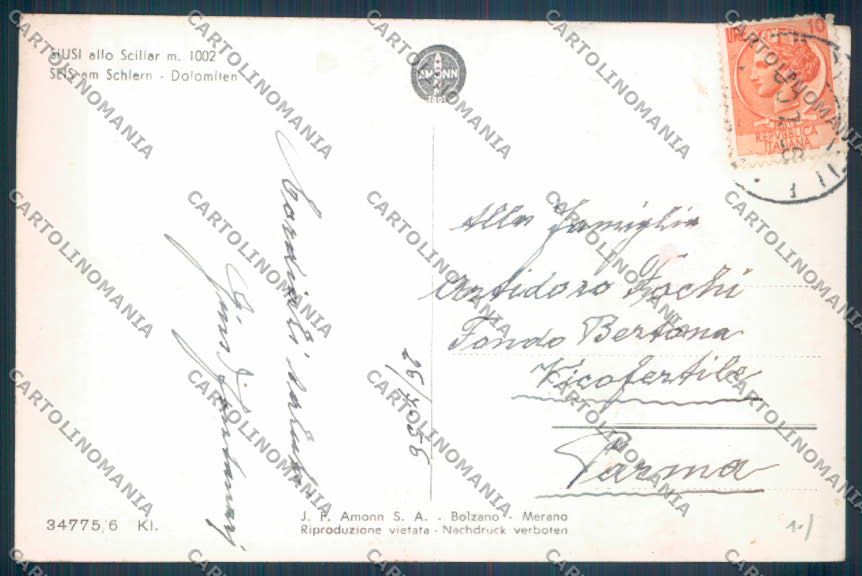 SIUSI allo Sciliar m. 1002
SEIS am Schlern - Dolomiten
AMONN
1801
LIRE 10
POSTE
REPUBBLICA
ITALIANA
Cordiali saluti
Alla Famiglia
Antidoro Fochi
Fondo Bertona
Vicofertile
Parma
34775/6 Kl.
J. F. Amonn S. A. - Bolzano - Merano
Riproduzione vietata - Nachdruck verboten
CARTOLINOMANIA